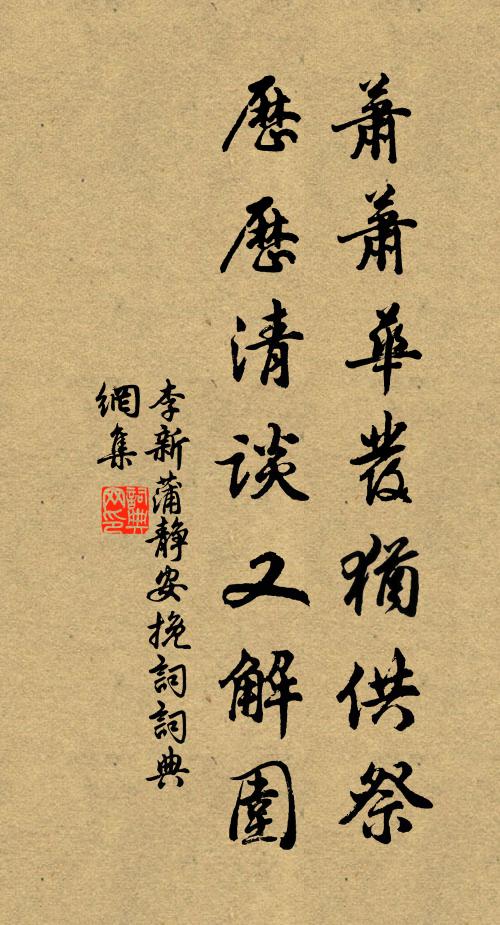 蕭蕭華發猶供祭
歷歷清談又解圍
李新蒲靜安挽詞詞典
網集
詞典
网印